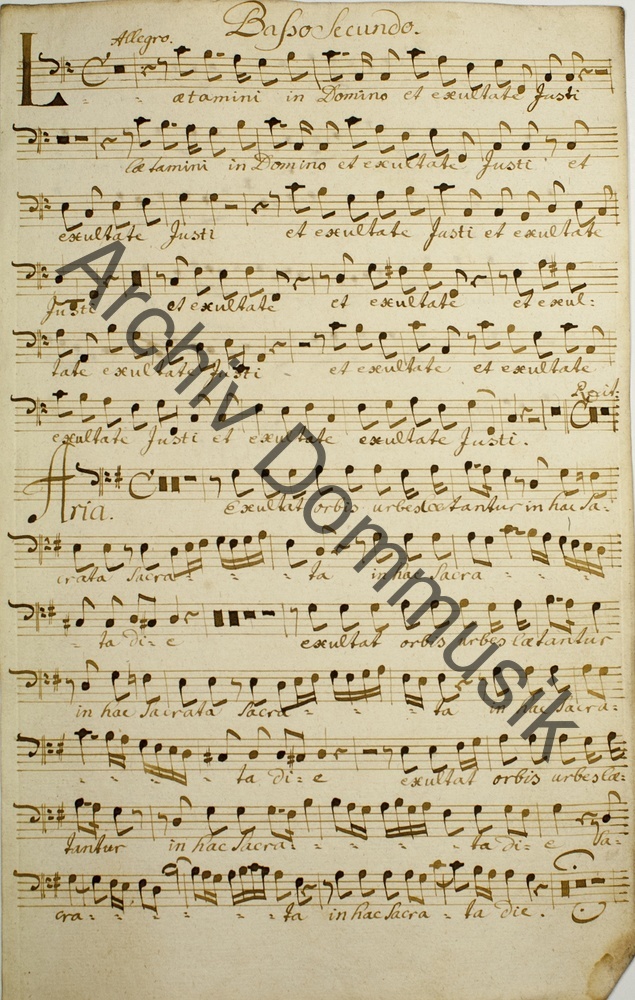 Basso Secundo.
Allegro.
Lætamini in Domino et exultate Justi
lætamini in Domino et exultate Justi et
exultate Justi et exultate Justi et exultate
Justi et exultate et exultate et exul:
tate exultate Justi et exultate et exultate
Recit:
exultate Justi et exultate exultate Justi.
Aria. Exultat orbis urbes lætantur in hac Sa:
crata Sacra - - - ta in hac Sacra - - -
- ta di:e exultat orbis urbes lætantur
in hac Sacrata Sacra - - - ta in hac Sacra:
- - - - ta di:e exultat orbis urbes læ:
tantur in hac Sacra: - - - - ta di:e Sa:
cra: - - - - ta in hac Sacra - ta die.
Archiv Dommusik